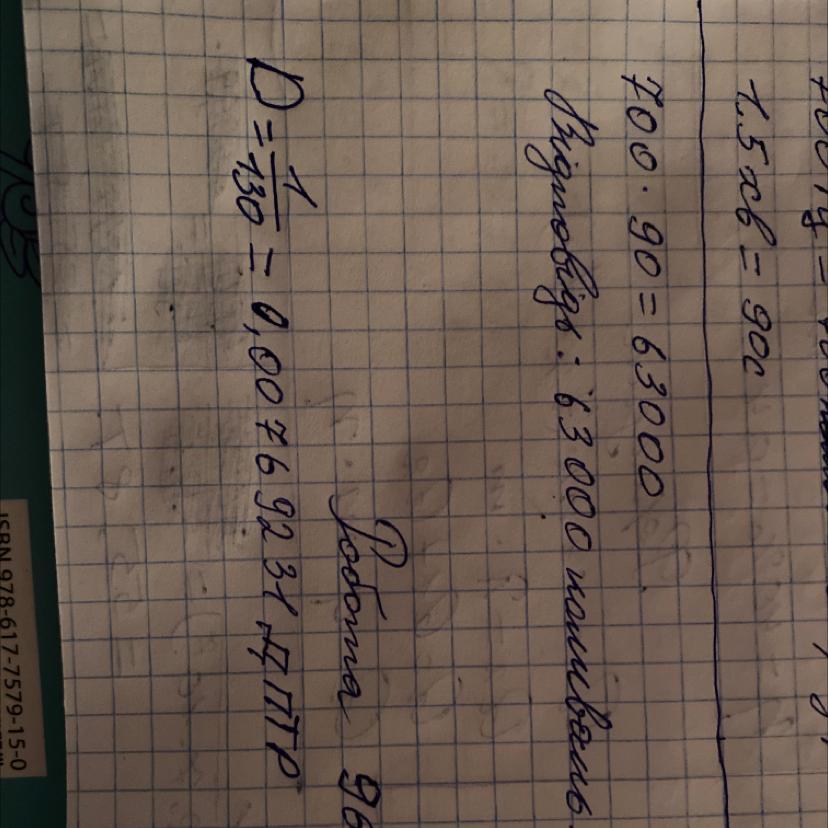 1.5 хв = 90с
700 · 90 = 63000
Відповідь: 63000 коливань.
Робота 96
D = 1/130 = 0,00769231 дптр
ISBN 978-617-7579-15-0